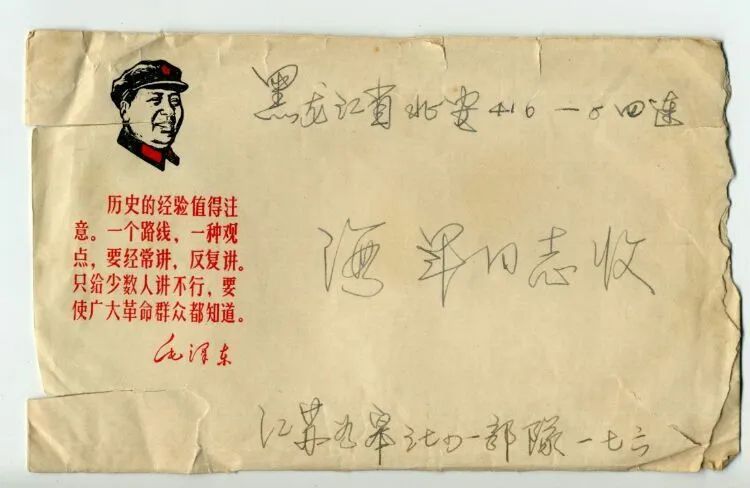 历史的经验值得注
意。一个路线，一种观
点，要经常讲，反复讲。
只给少数人讲不行，要
使广大革命群众都知道。
毛泽东
黑龙江省北安416一5四连
海军同志收
江苏 部队一七六